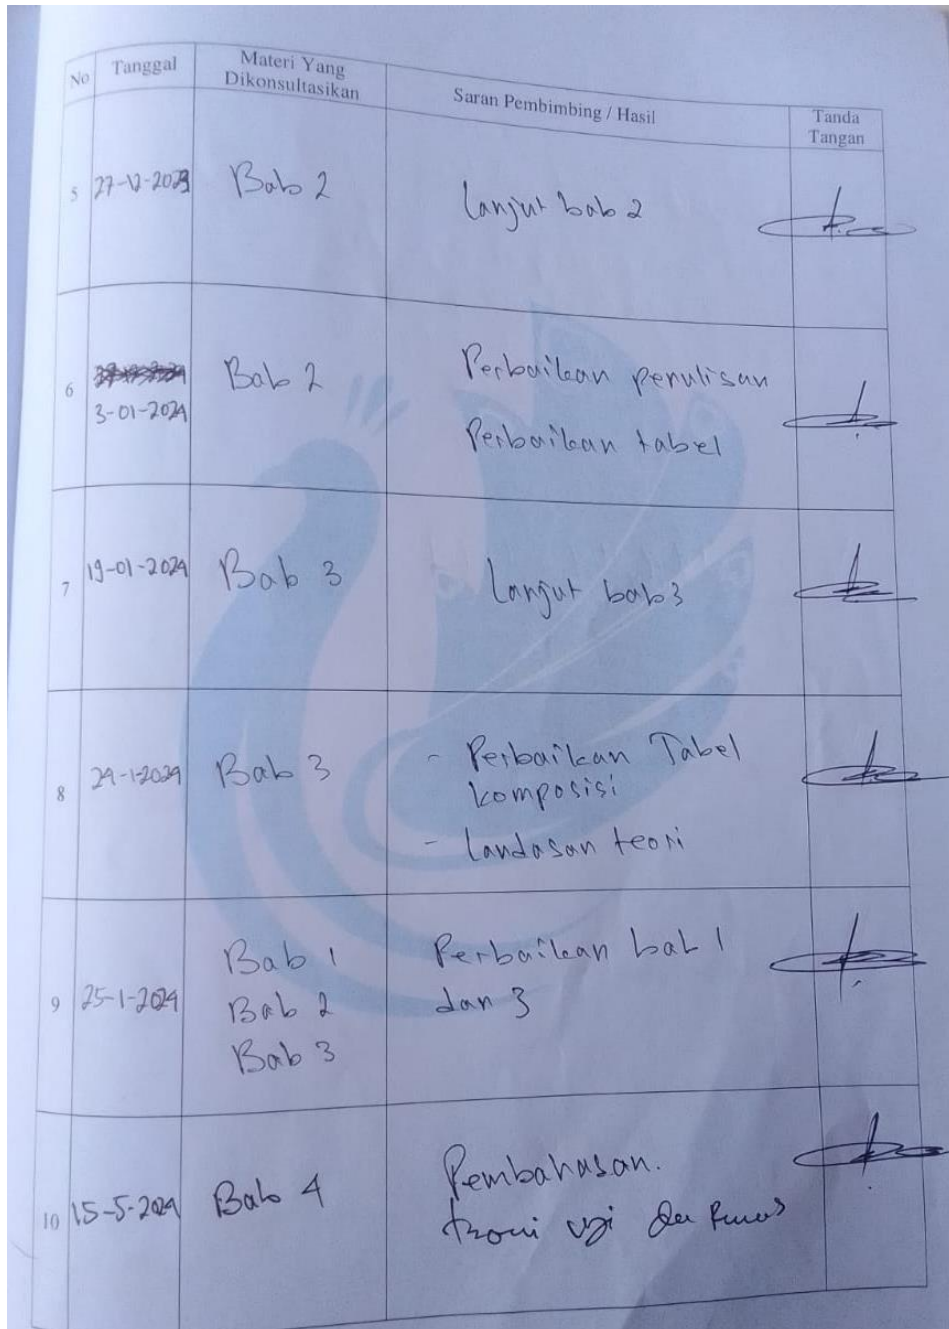 No Tanggal Materi Yang Dikonsultasikan Saran Pembimbing / Hasil Tanda Tangan
5 27-12-2023 Bab 2 Lanjut bab 2
6 3-01-2024 Bab 2 Perbaikan penulisan
Perbaikan tabel
7 19-01-2024 Bab 3 Lanjut bab 3
8 24-1-2024 Bab 3 - Perbaikan Tabel
komposisi
- Landasan teori
9 25-1-2024 Bab 1 Perbaikan bab 1
Bab 2 dan 3
Bab 3
10 15-5-2024 Bab 4 Pembahasan.
uji